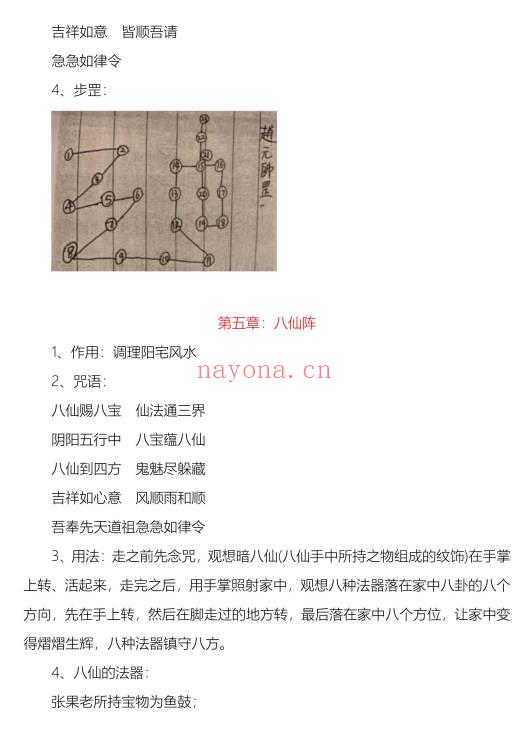 吉祥如意　皆顺吾请
急急如律令
4、步罡：
赵元帅罡.
1
2
3
4
5
6
7
8
9
10
11
12
13
14
15
16
17
18
19
20
21
22
23
第五章：八仙阵
1、作用：调理阳宅风水
nayona.cn
2、咒语：
八仙赐八宝　仙法通三界
阴阳五行中　八宝蕴八仙
八仙到四方　鬼魅尽躲藏
吉祥如心意　风顺雨和顺
吾奉先天道祖急急如律令
3、用法：走之前先念咒，观想暗八仙(八仙手中所持之物组成的纹饰)在手掌
上转、活起来，走完之后，用手掌照射家中，观想八种法器落在家中八卦的八个
方向，先在手上转，然后在脚走过的地方转，最后落在家中八个方位，让家中变
得熠熠生辉，八种法器镇守八方。
4、八仙的法器：
张果老所持宝物为鱼鼓；